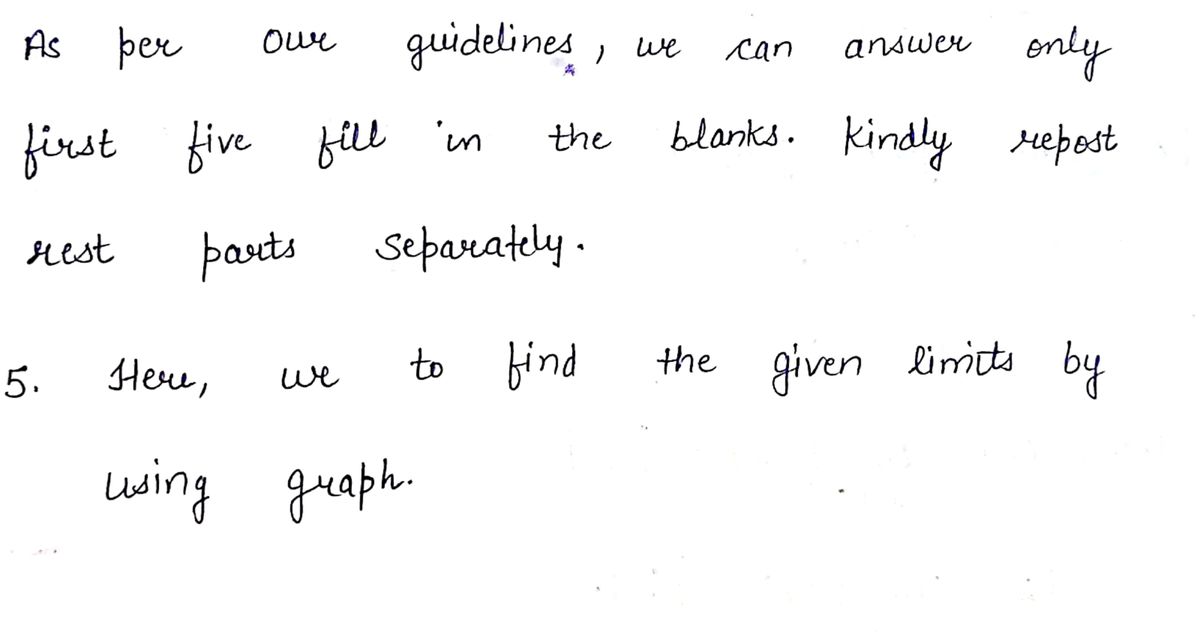 As per our guidelines, we can answer only
first five fill in the blanks. Kindly repost
rest parts separately.
5. Here, we to find the given limits by
using graph.